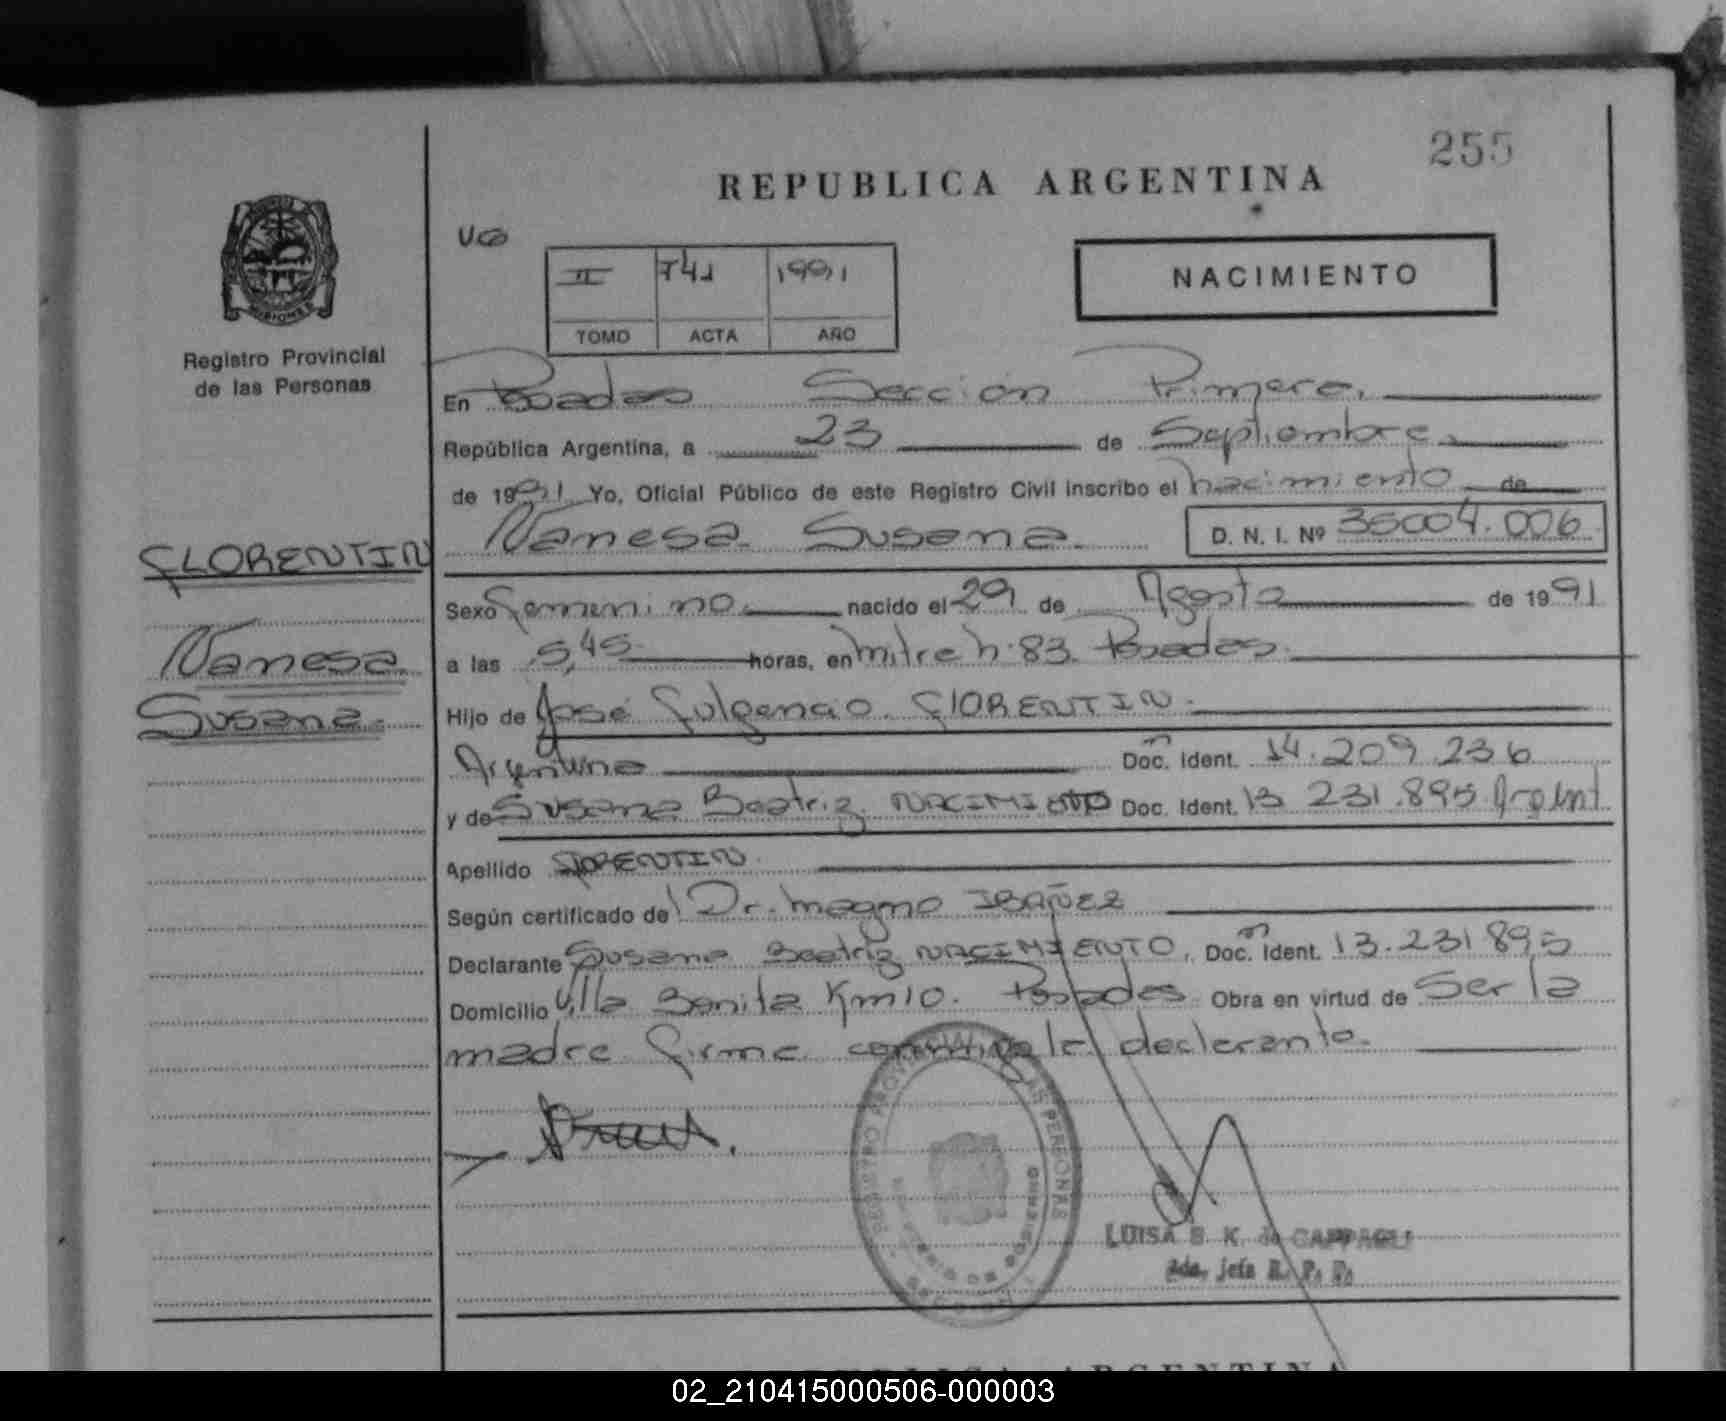 255
REPUBLICA ARGENTINA
MISIONES
Registro Provincial
de las Personas
II 741 1991
TOMO ACTA AÑO
NACIMIENTO
En Posadas Sección Primera.
República Argentina, a 23 de Septiembre
de 1991 Yo, Oficial Público de este Registro Civil inscribo el nacimiento de
Vanesa Susana D. N. I. Nº 36004.006
FLORENTIN
Vanesa
Susana
Sexo femenino nacido el 29 de Agosto de 1991
a las 5,45 horas, en Mitre n: 83 Posadas
Hijo de José Fulgencio FlORENTIN
Argentino Doc. Ident. 14.209.236
y de Susana Beatriz NACIMIENTO Doc. Ident. 13 231.895 Argent
Apellido FLORENTIN
Según certificado del Dr. Magno IBAÑEZ
Declarante Susana Beatriz NACIMIENTO, Doc. Ident. 13.231 895
Domicilio Villa Bonita Km10. Posadas Obra en virtud de Ser la
madre firma conmigo la declarante.
REGISTRO PROVINCIAL DE LAS PERSONAS
LUISA S. K. de CAPPAGLI
2da. jefa R. P. P.
REPUBLICA ARGENTINA
02_210415000506-000003